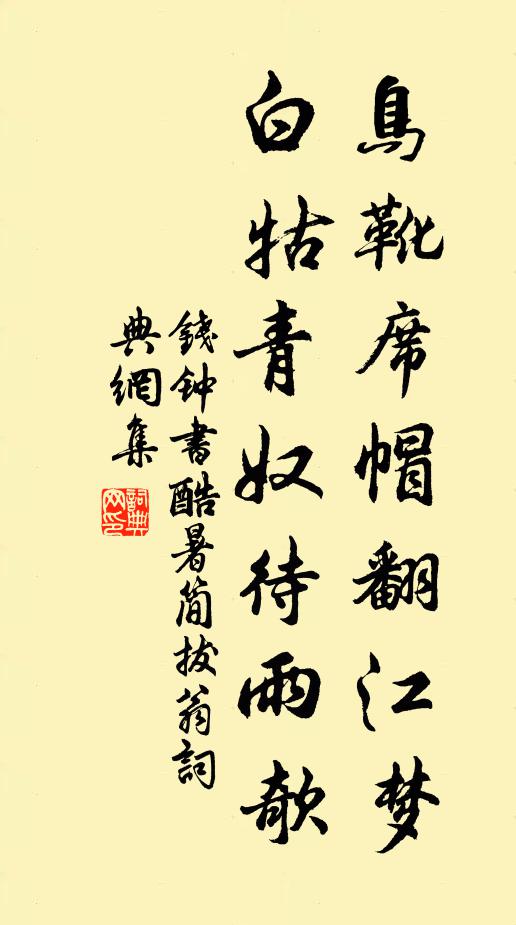 烏靴席帽翻江梦
白牯青奴待雨欹
錢钟書酷暑简拔翁詞
典網集
詞典网印